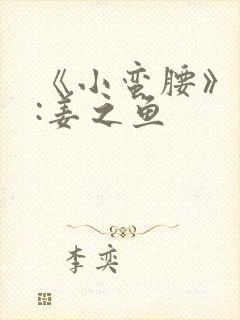 《小蛮腰》
:姜之鱼
李奕